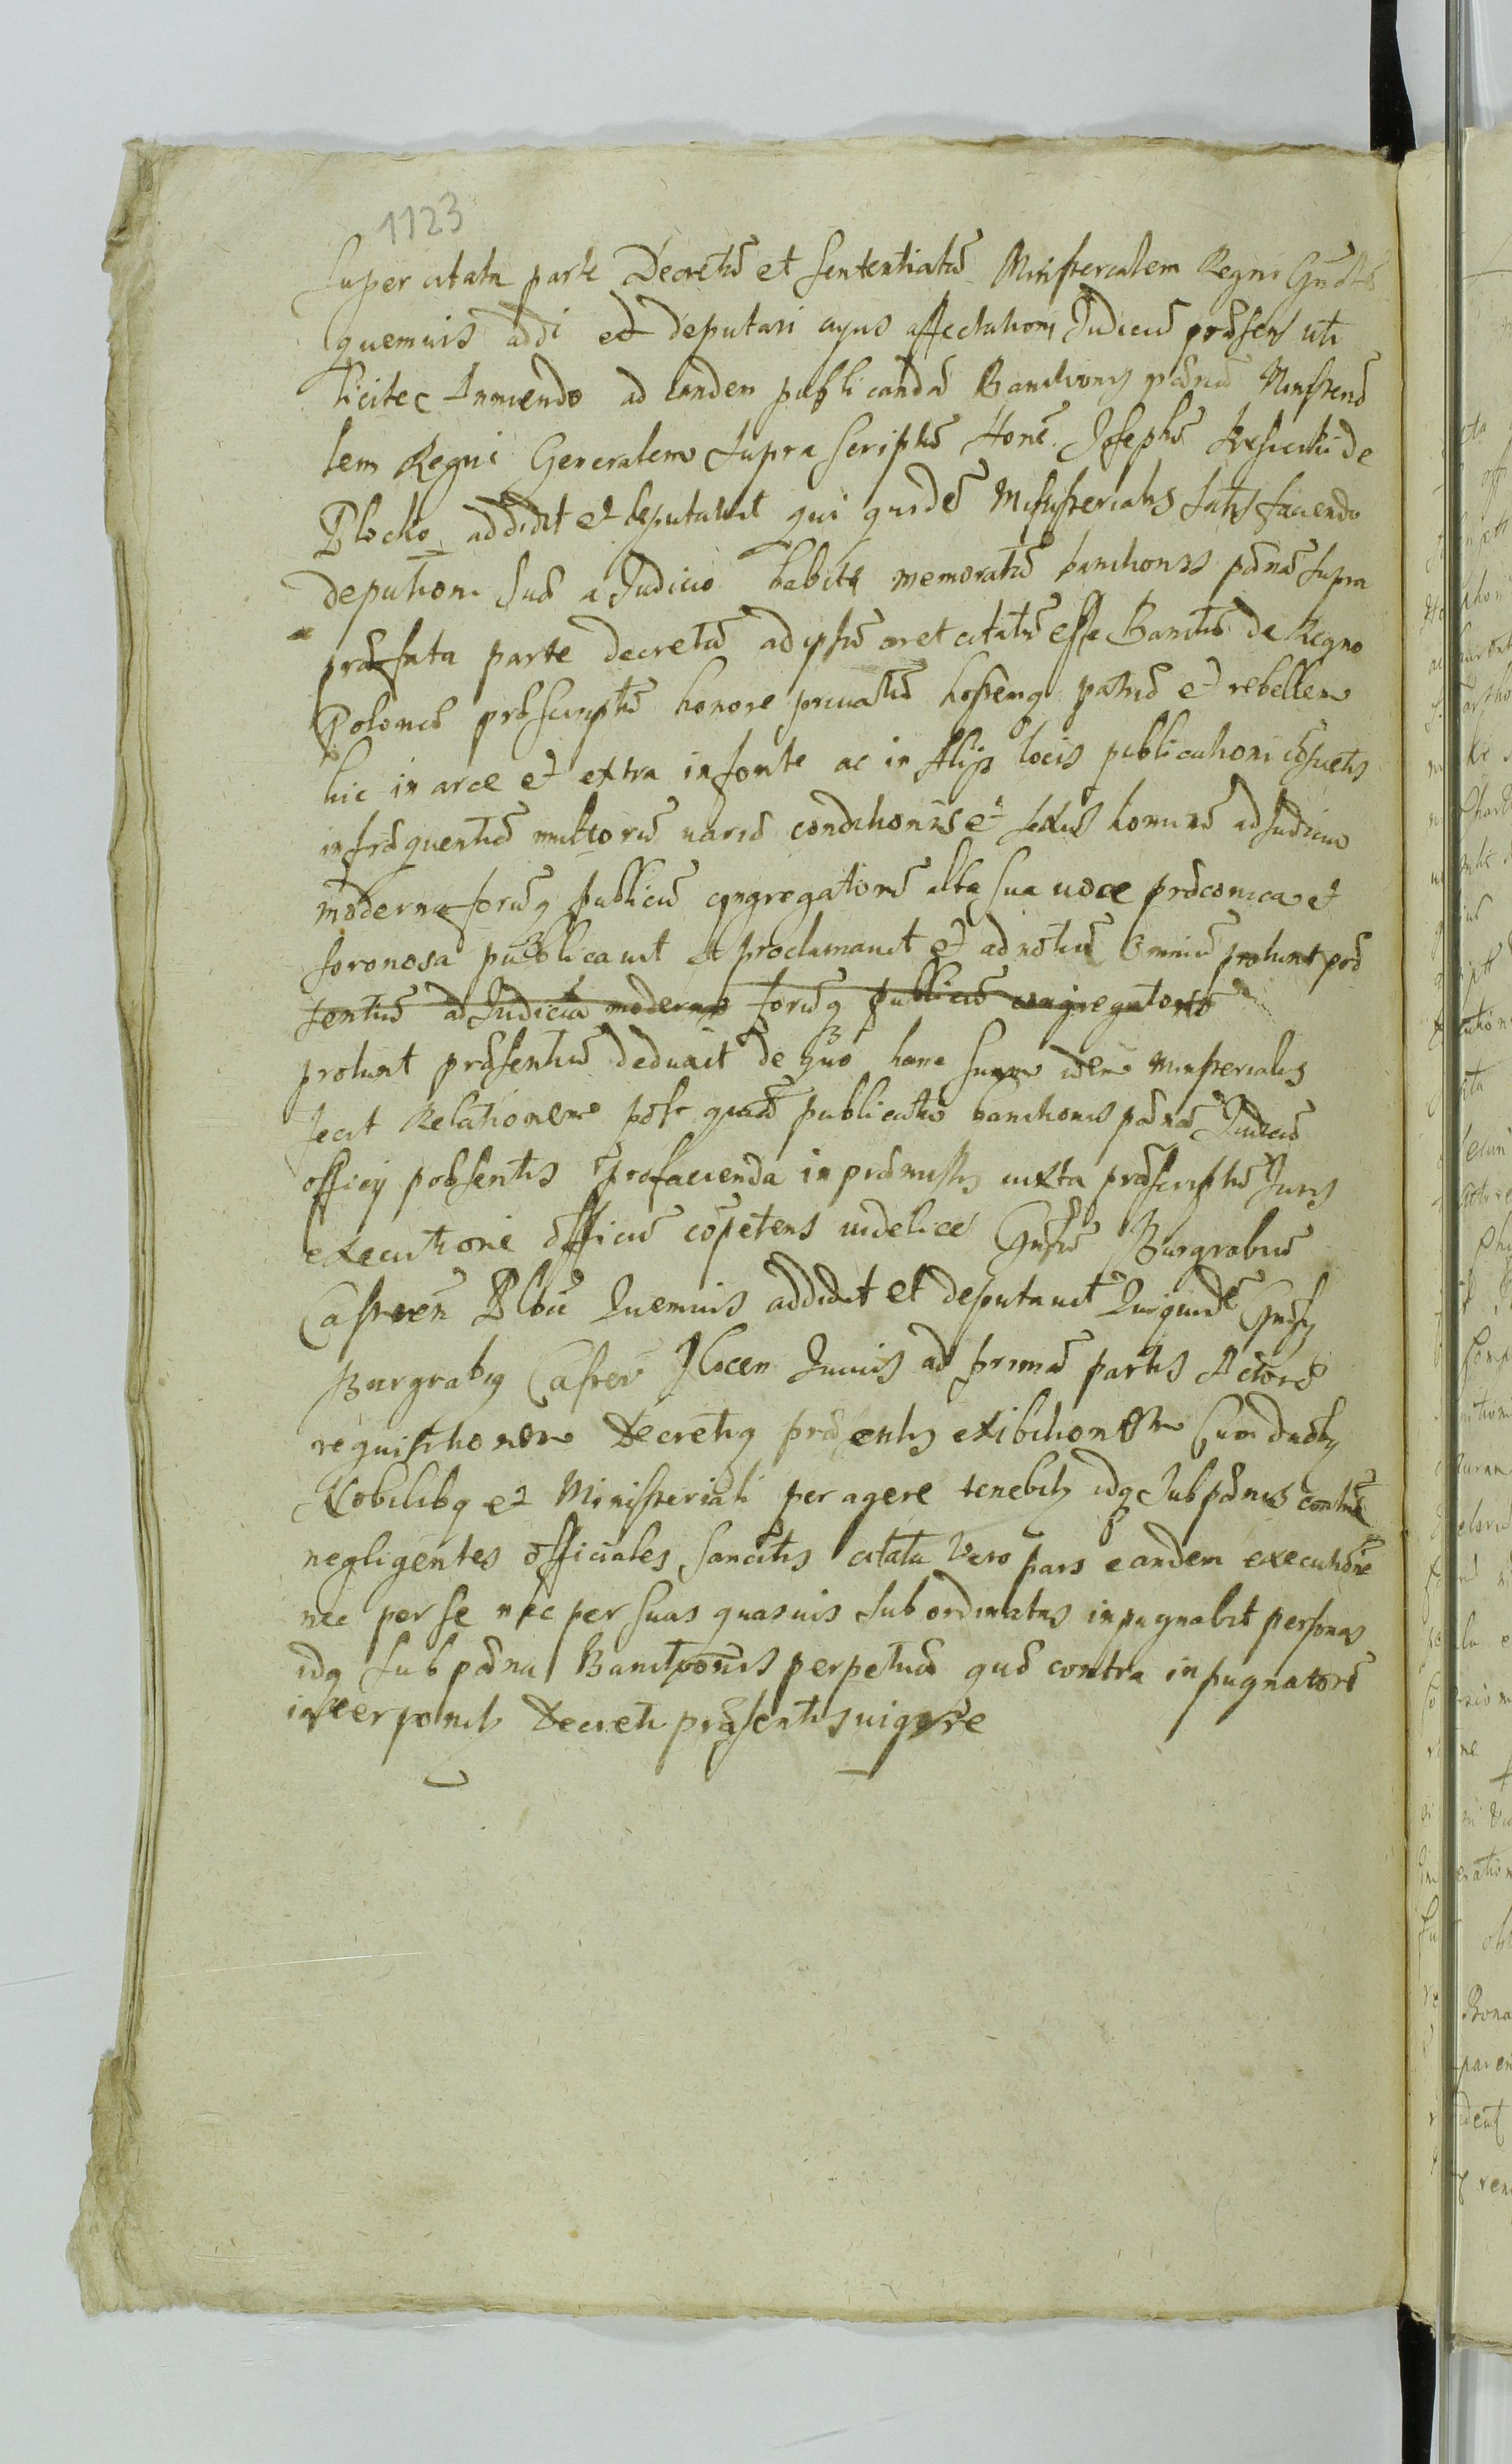 1123
super citata parte Decretũ et sententiatũ Ministerialem Regni
quemuis addi et deputari cuius affectationi Judiciũ præsens uti
licitæ Annuendo ad eandem publicandã Banitionis pænã Ministeria
lem Regni Generalem supra scriptũ Hone. Josephũ de
Plocko addidit et deputauit qui quidẽ Ministerialis satis faciendo
deputationi suæ a Judicio habitæ memoratã banitionis pænã supra
præfata parte decretã ad ipsũ citatũ esse Banitũ de Regno
Poloniæ proscriptũ honore priuatũ hostemq patriæ et rebellem
hic in arce et extra in fonte ac in alijs locis publicationi cõsuetis
in fræquentiã multorũ uariæ conditionis et sexus hominũ ad Judicia
moderna forũq publicũ congregatorũ alta sua uoce præconica et
soronosa publicauit et proclamauit et ad nõtitiã Omniũ proburit præ
sentiũ ad Judicia moderna forũq publicũ congregatorũ
præsentiũ deduxit de quo hanc suam idem Ministerialis
fecit Relationem post quã publicatã banitionis pænã Judiciũ
officij præsentis pro facienda in præmissis iuxta præscriptũ Juris
executione õfficiũ cõpetens uidelicet Gnsũ Burgrabiũ
Castren Plocẽ Quemuis addidit et deputauit Qui quidẽ Gnsus
Burgrabiq Castreñ Plocen Quiuis ad primã partis Actoreæ
requisitionem Decretiq præsentis exibitionem Cum duobq
Nobilibq et Ministeriali per agere tenebitq idq sub pænis contra
negligentes õfficiales sancitis citata Vero pars eandem executionẽ
nec per se nec per suas quasuis sub ordinatas inpugnabit personas
idq sub pæna Banitionis perpetuæ quæ contra inpugnatorẽ
interponitq Decreti præsentis uigore